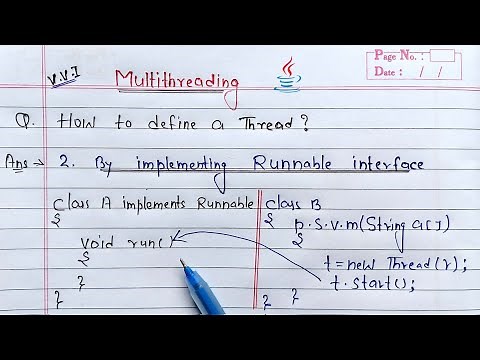 Page No. :
Date : / /
V.V.I
Multithreading
Q. How to define a Thread?
Ans → 2. By implementing Runnable interface
Class A implements Runnable
{
void run()
{
}
}
Class B
{
p.s.v.m(String a[])
{
t = new Thread(r);
t.start();
}
}